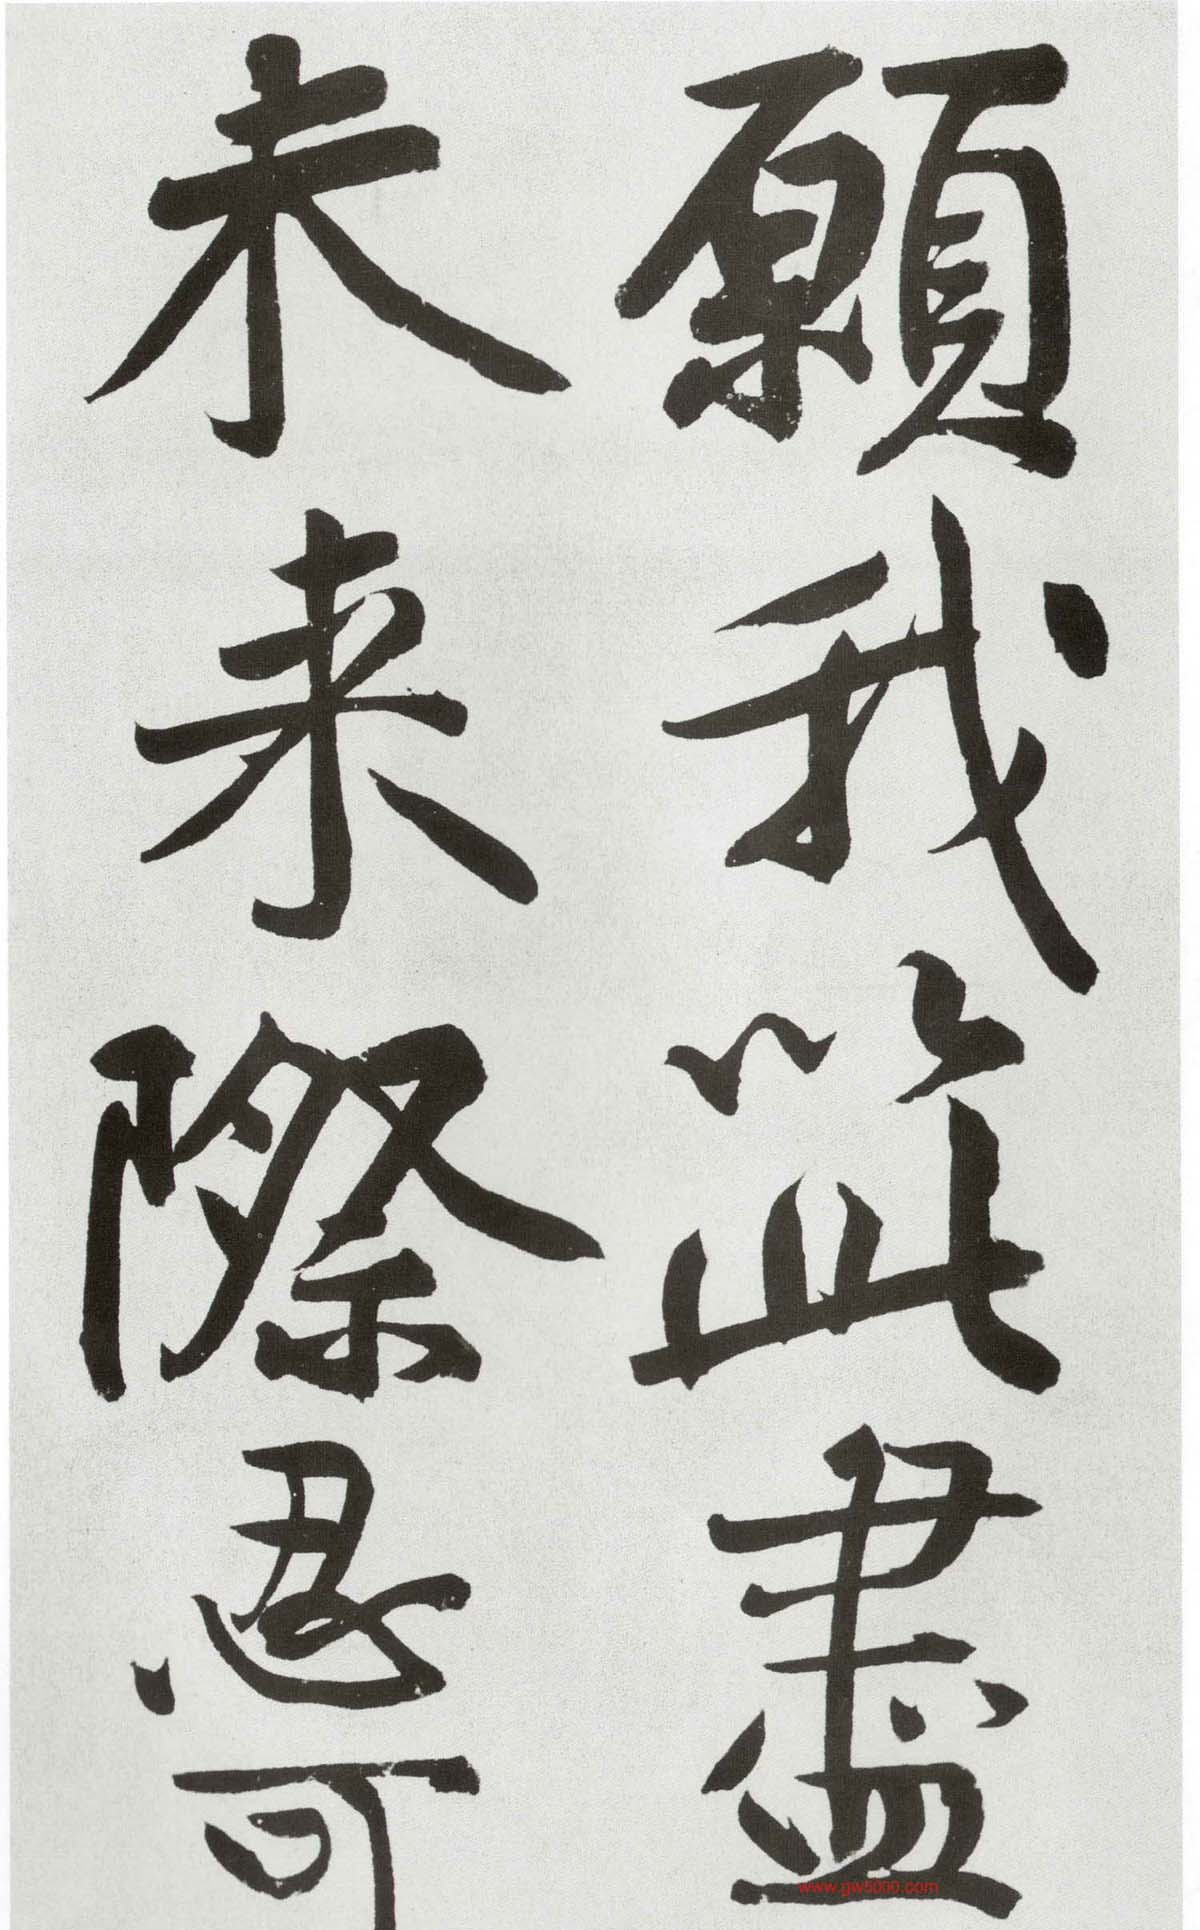 願我以此盡
未来際忍可
www.gw5000.com